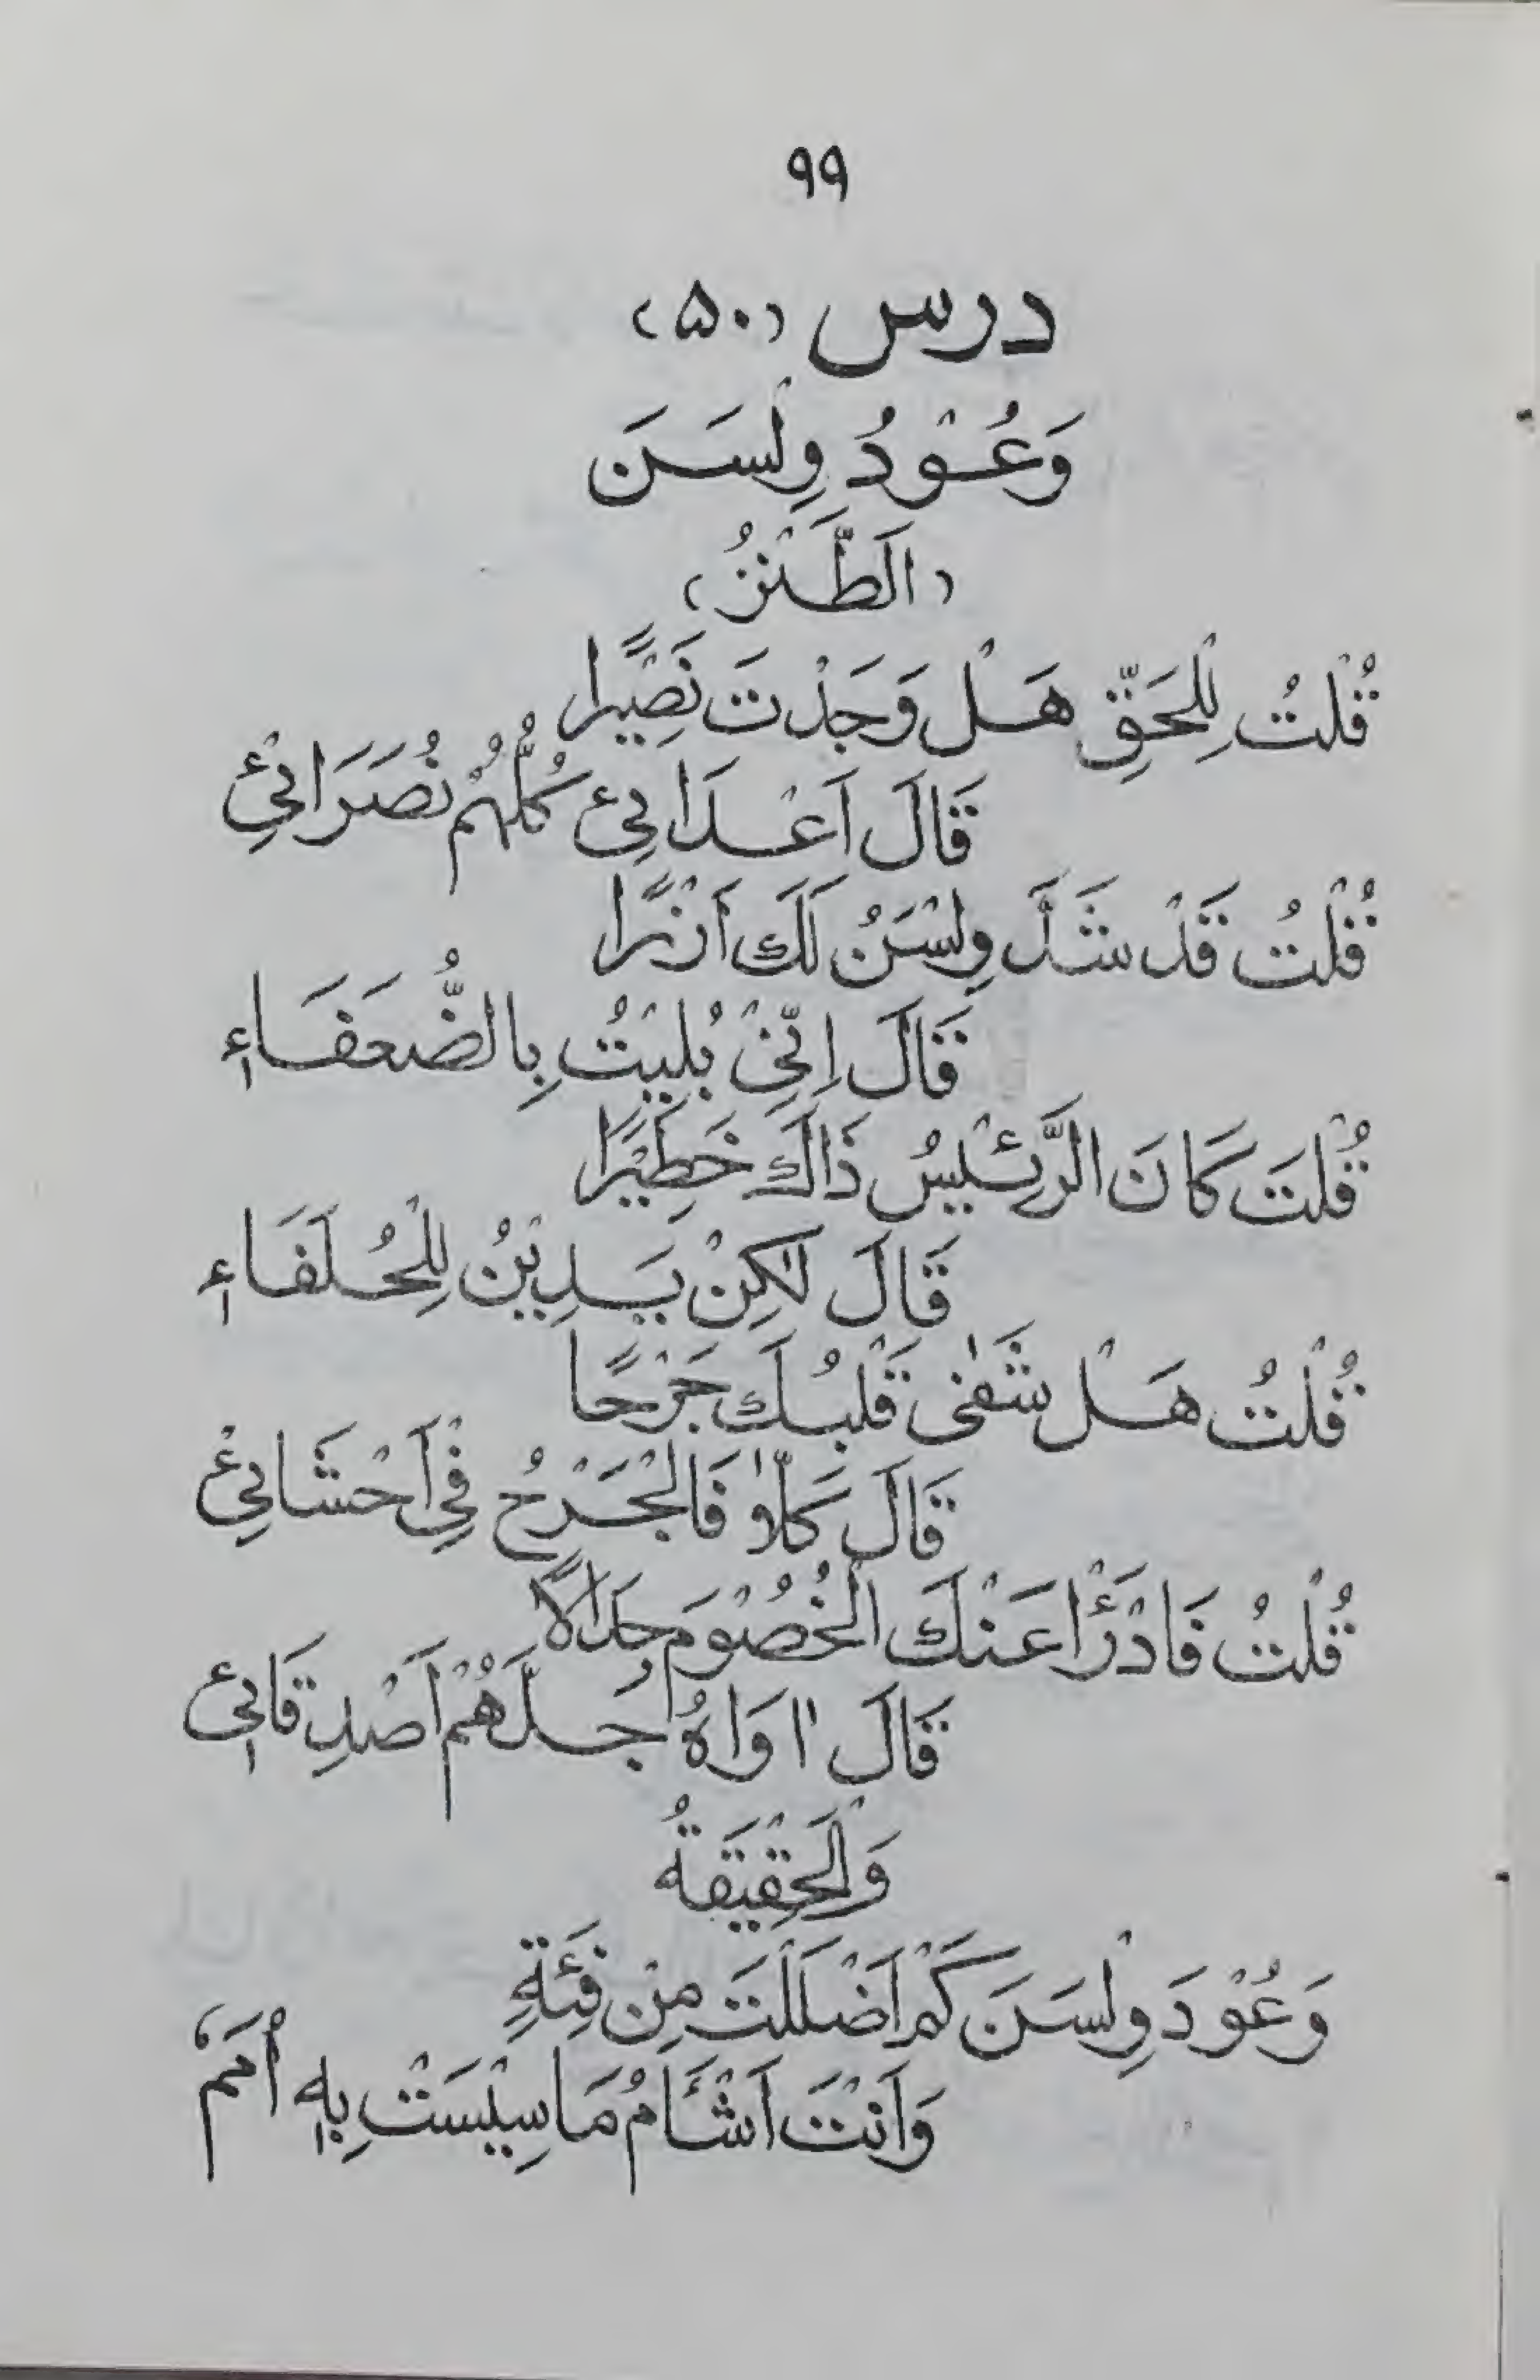 ۹۹
درس (۵۰)
وَعُوْدُ وِلْسَنَ
(اَلطَّنْزُ)
قُلْتُ لِلْحَقِّ هَلْ وَجَدْتَ نَصِيْرًا
قَالَ اَعْدَائِيْ كُلُّهُمْ نُصَرَائِيْ
قُلْتُ قَدْ شَدَّ وِلْسَنُ لَكَ اَزْرًا
قَالَ اِنِّيْ بُلِيْتُ بِالضُّعَفَاءِ
قُلْتَ كَانَ الرَّئِيْسُ ذَاكَ خَطِيْرًا
قَالَ لٰكِنْ يَدِيْنُ لِلْحُلَفَاءِ
قُلْتُ هَلْ شَفٰى قَلْبُكَ جَرْحًا
قَالَ كَلَّا فَالْجَرْحُ فِيْ اَحْشَائِيْ
قُلْتُ فَادْرَأْ عَنْكَ الْخُصُوْمَ جِدَالًا
قَالَ اَوَاهُ جُلُّهُمْ اَصْدِقَائِيْ
وَالْحَقِيْقَةُ
وَعُوْدَ وِلْسَنَ كَمْ اَضْلَلْتَ مِنْ فِئَةٍ
وَاَنْتَ اَشْأَمُ مَا سِيْسَتْ بِهٖ اُمَمٌ